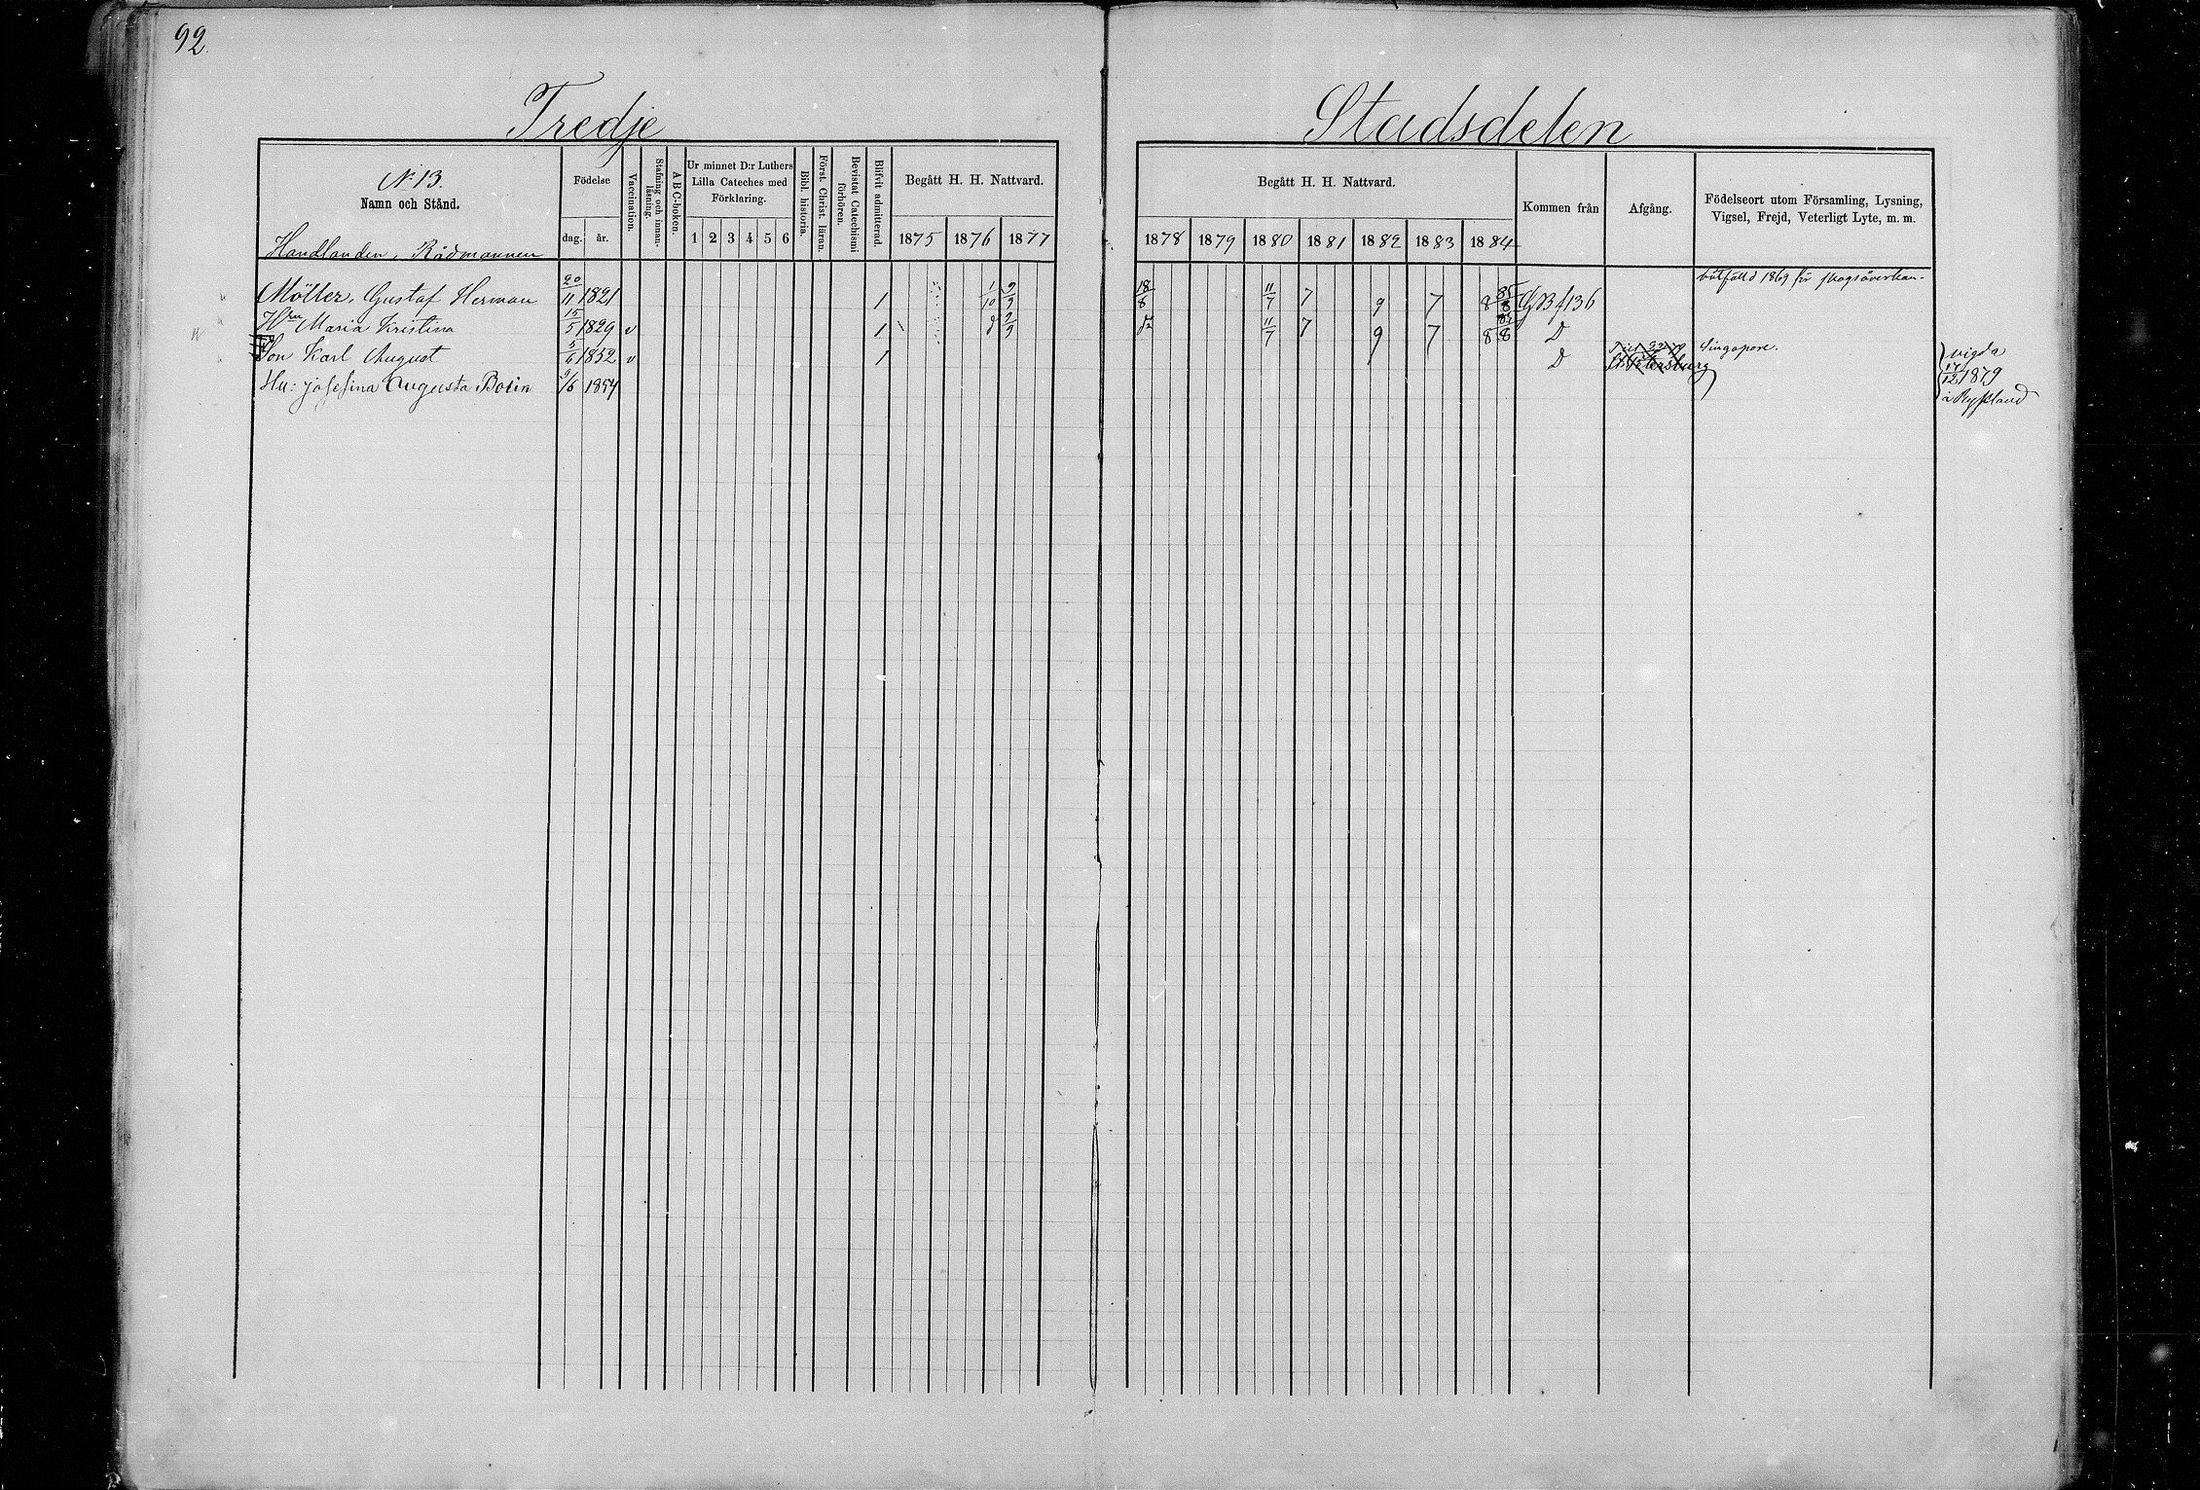 92.
Tredje Stadsdelen
N. 13.
Namn och Stånd.
Födelse
dag. år.
Vaccination.
Stafning och innan-läsning.
A B C-boken.
Ur minnet D:r Luthers
Lilla Cateches med
Förklaring.
1 2 3 4 5 6
Bibl. historia.
Först. Christ. läran.
Bevistat Catechismi förhören.
Blifvit admitterad.
Begått H. H. Nattvard.
1875 1876 1877
Begått H. H. Nattvard.
1878 1879 1880 1881 1882 1883 1884
Kommen från
Afgång.
Födelseort utom Församling, Lysning,
Vigsel, Frejd, Veterligt Lyte, m. m.
Handlanden, Rådmannen
bötfälld 1869 för skogsåverkan.
Möller, Gustaf Herman 20/11 1821 1 1/10 9/9 18/8 11/7 7 9 7 8 85/8 GB f 136
Hru Maria Kristina 15/5 1829 v 1 d 9/9 11/7 7 9 7 8 8 D
Son Karl August 5/6 1852 v 1 D St Petersburg Singapore.
Hu: Josefina Augusta Botin 9/6 1854
vigda
17/12 1879
i Ryssland